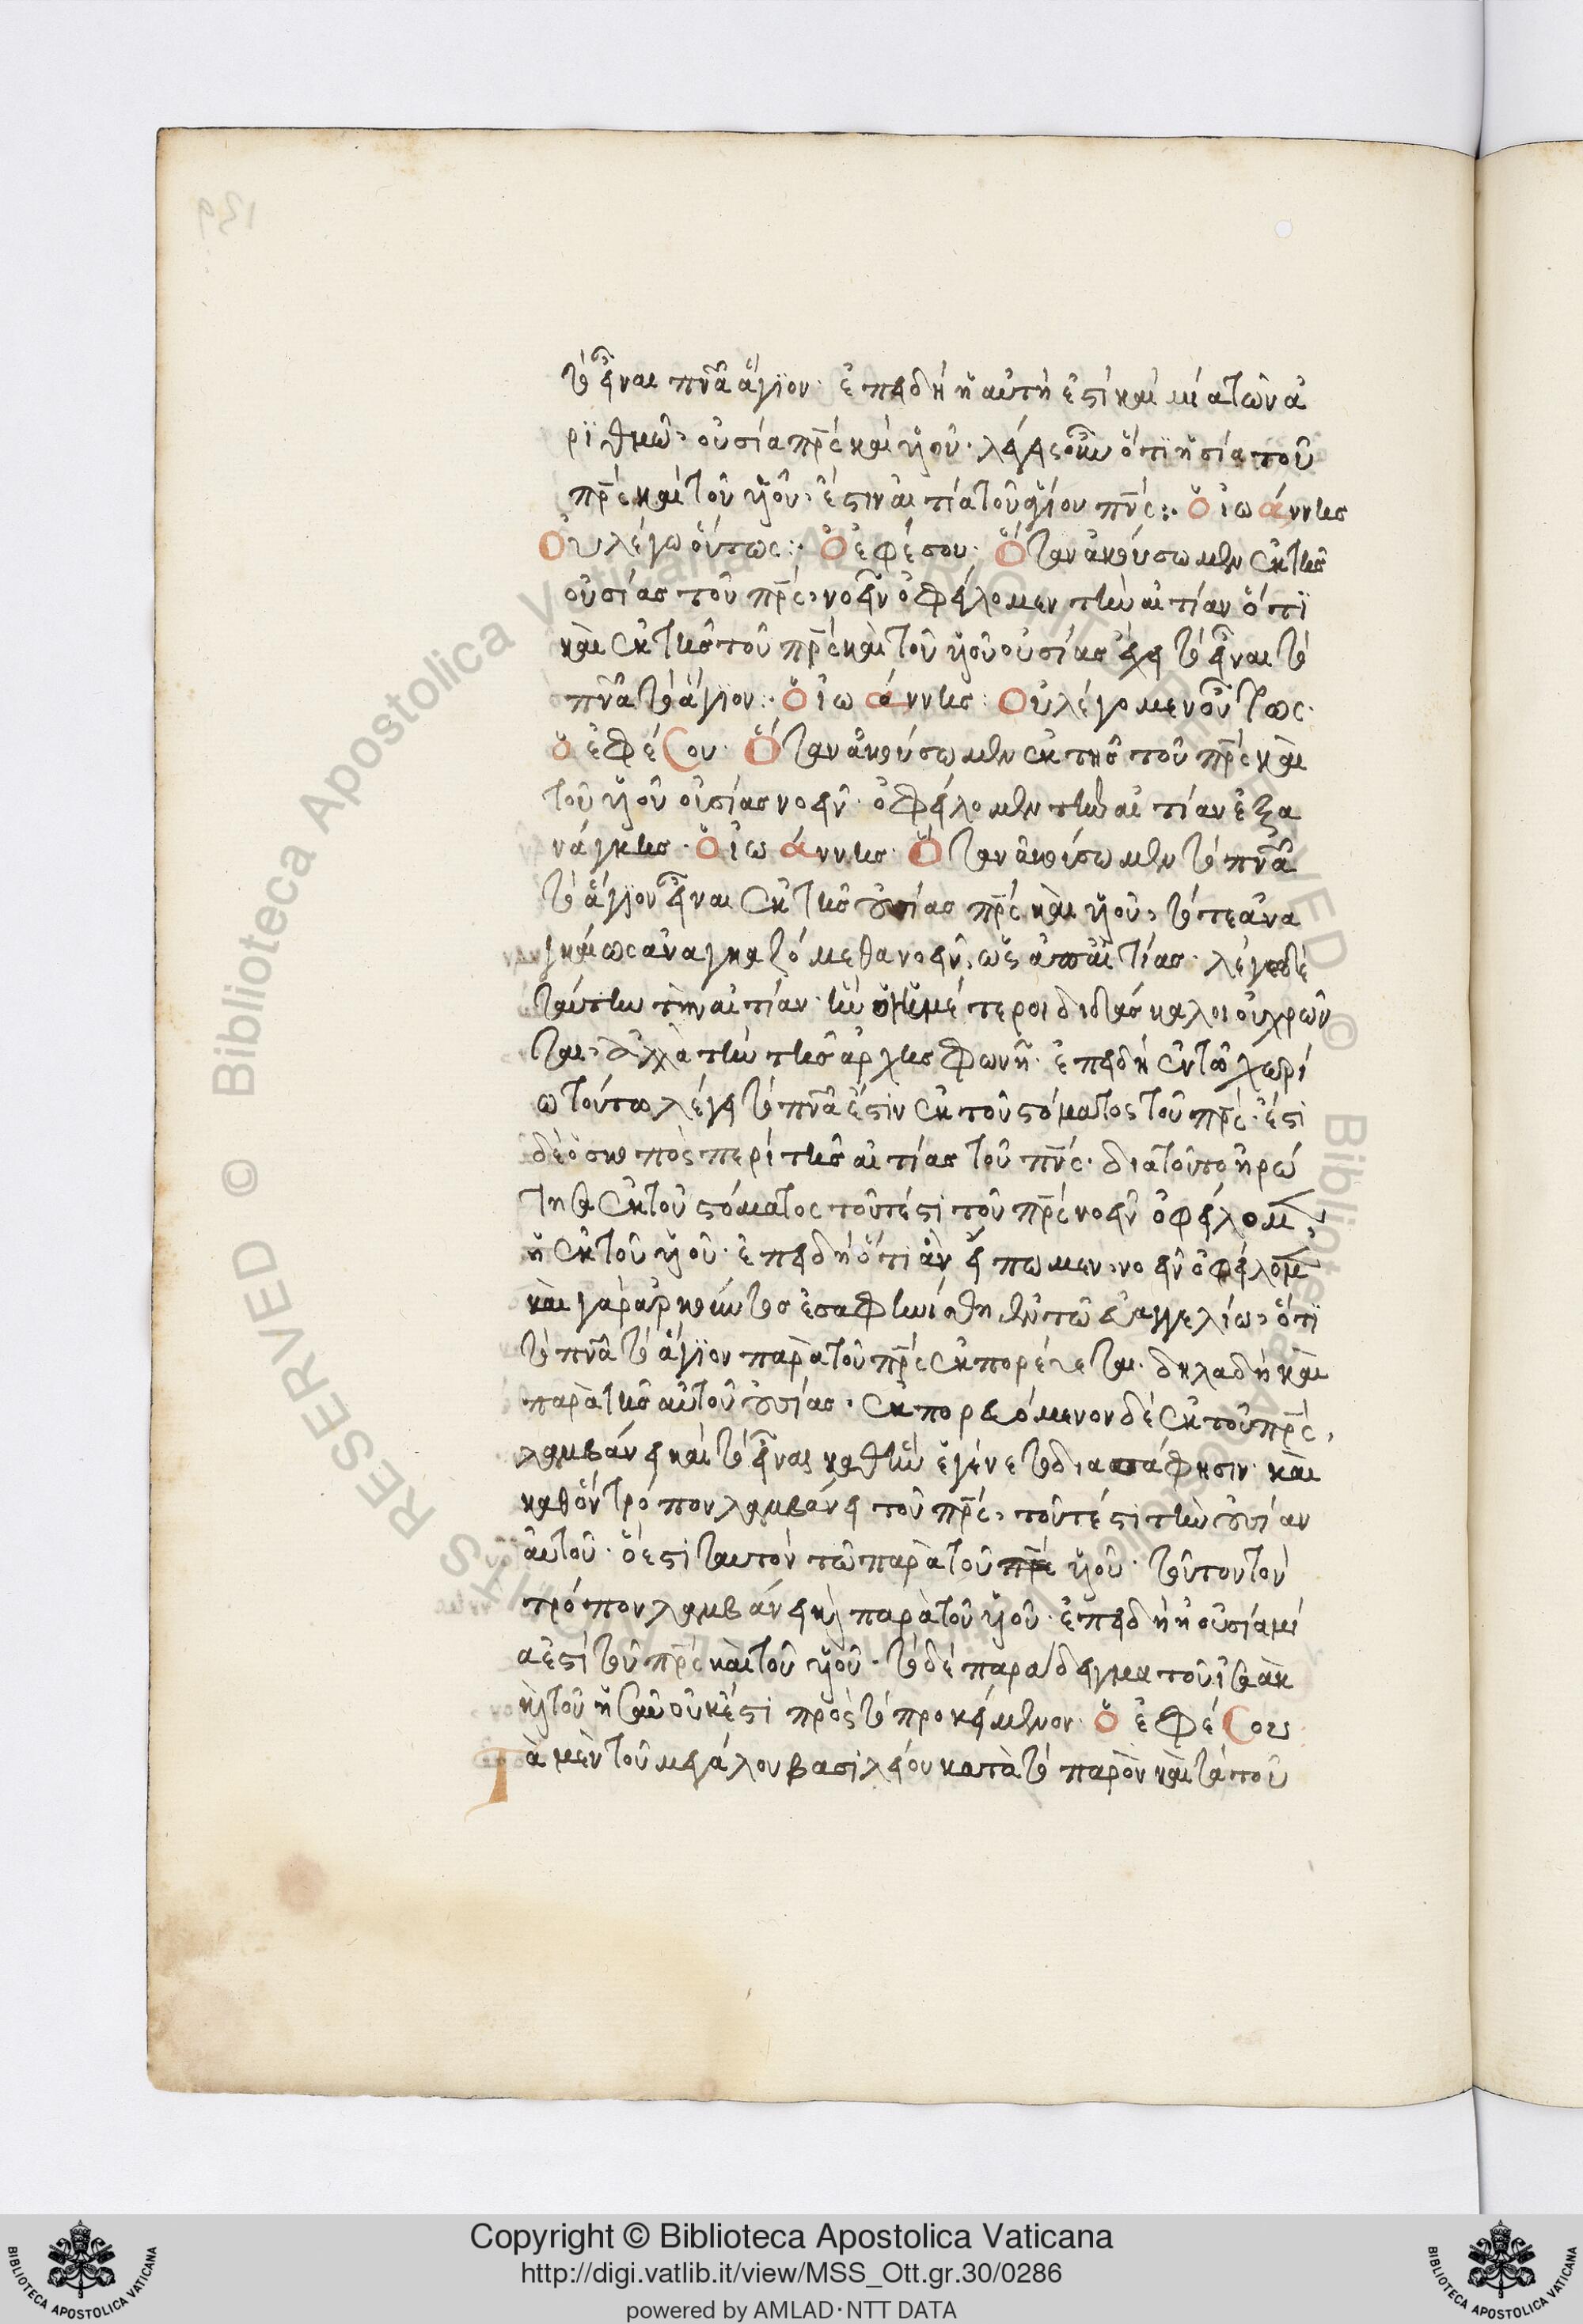 τὸ εἶναι πνᾶ ἅγϊον· ἐπειδὴ ἡ αὐτὴ ἐστὶ καὶ μία τῶν ἀ
ρϊθμῶ, οὐσία πρς καὶ υἱοῦ· λέγει ὅτϊ ἡ σία τοῦ
πρς καὶ τοῦ υἱοῦ, ἐστιν αἰτία τοῦ ἁγίου πνς: ὁ ἰωάννης
Οὐ λέγω οὕτως: Ὁ ἐφέσου· Ὅταν ἀκούσωμεν ἐκ τῆς
οὐσίας τοῦ πρς, νοεῖν ὀφείλομεν τὴν αἰτίαν ὅτϊ
καὶ ἐκ τῆς τοῦ πρς καὶ τοῦ υἱοῦ οὐσίας ἔχει τὸ εἶναι τὸ
πνᾶ τὸ ἅγϊον: ὁ ἰωάννης: Οὐ λέγομεν οὕτως·
ὁ ἐφέσου· Ὅταν ἀκούσωμεν ἐκ τῆς τοῦ πρς καὶ
τοῦ υἱοῦ οὐσίας νοεῖν· ὀφείλομεν τὴν αἰτίαν ἐξα
νάγκης· ὁ ἰωάννης· Ὅταν ἀκούσωμεν τὸ πνᾶ
τὸ ἅγϊον εἶναι ἐκ τῆς οὐσίας πρς καὶ υἱοῦ, τότε ἀνα
γκαίως ἀναγκαζόμεθα νοεῖν, ὡς ἀπ αἰτίας· λέγω δὲ
ταύτην τὴν αἰτίαν· ἡμέτεροι διδάσκαλοι οὐ χρῶν
ται, ἀλλὰ τὴν τῆς ἀρχῆς φωνῇ· ἐπειδὴ ἐν τῶ χωρί
ω τούτω λέγει τὸ πνᾶ ἐστιν ἐκ τοῦ στόματος τοῦ πρς· ἐστὶ
δὲ ὁ σκοπὸς περὶ τῆς αἰτίας τοῦ πνς· διατοῦτο ἠρώ
τησα ἐκ τοῦ στόματος τουτέστι τοῦ πρς νοεῖν ὀφείλομ,
ἢ ἐκ τοῦ υἱοῦ· ἐπειδὴ ὅτι ἂν εἴπωμεν, νοεῖν ὀφείλομ
καὶ γὰρ ἀρκούντως ἐσαφηνίσθη ἐν τῶ εὐαγγελίω, ὅτϊ
τὸ πνᾶ τὸ ἅγϊον παρὰ τοῦ πρς ἐκπορεύεται· δηλαδὴ καὶ
παρὰ τῆς αὐτοῦ οὐσίας· ἐκπορευόμενον δὲ ἐκ τοῦ πρς,
λαμβάνει καὶ τὸ εἶναι καθὴν ἐγένετο διασάφησιν· καὶ
καθ ὃν τρόπον λαμβάνει τοῦ πρς, τουτέστι τὴν οὐσίαν
αὐτοῦ· ὅ ἐστὶ ταυτὸν τῶ παρὰ τοῦ υἱοῦ· τοῦτον τὸν
τρόπον λαμβάνει καὶ παρὰ τοῦ υἱοῦ· ἐπειδὴ ἡ οὐσία μί
α ἐστὶ τοῦ πρς καὶ τοῦ υἱοῦ· τὸ δὲ παράδειγμα τοῦ ἰσαὰκ
καὶ τοῦ ἡσαῦ οὐκ ἐστὶ πρὸς τὸ προκείμενον· ὁ ἐφέσου
Τὰ μὲν τοῦ μεγάλου βασιλείου κατὰ τὸ παρὸν καὶ τὰ τοῦ
Copyright © Biblioteca Apostolica Vaticana
http://digi.vatlib.it/view/MSS_Ott.gr.30/0286
powered by AMLAD·NTT DATA